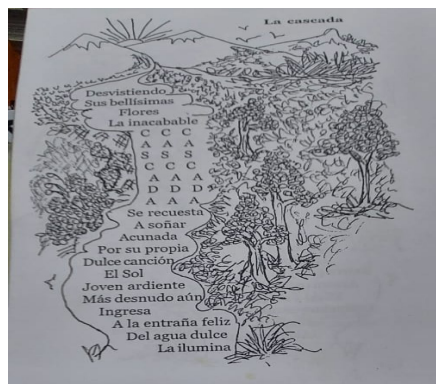 La cascada
Desvistiendo
Sus bellísimas
Flores
La inacabable
C C C
A A A
S S S
C C C
A A A
D D D
A A A
Se recuesta
A soñar
Acunada
Por su propia
Dulce canción
El Sol
Joven ardiente
Más desnudo aún
Ingresa
A la entraña feliz
Del agua dulce
La ilumina